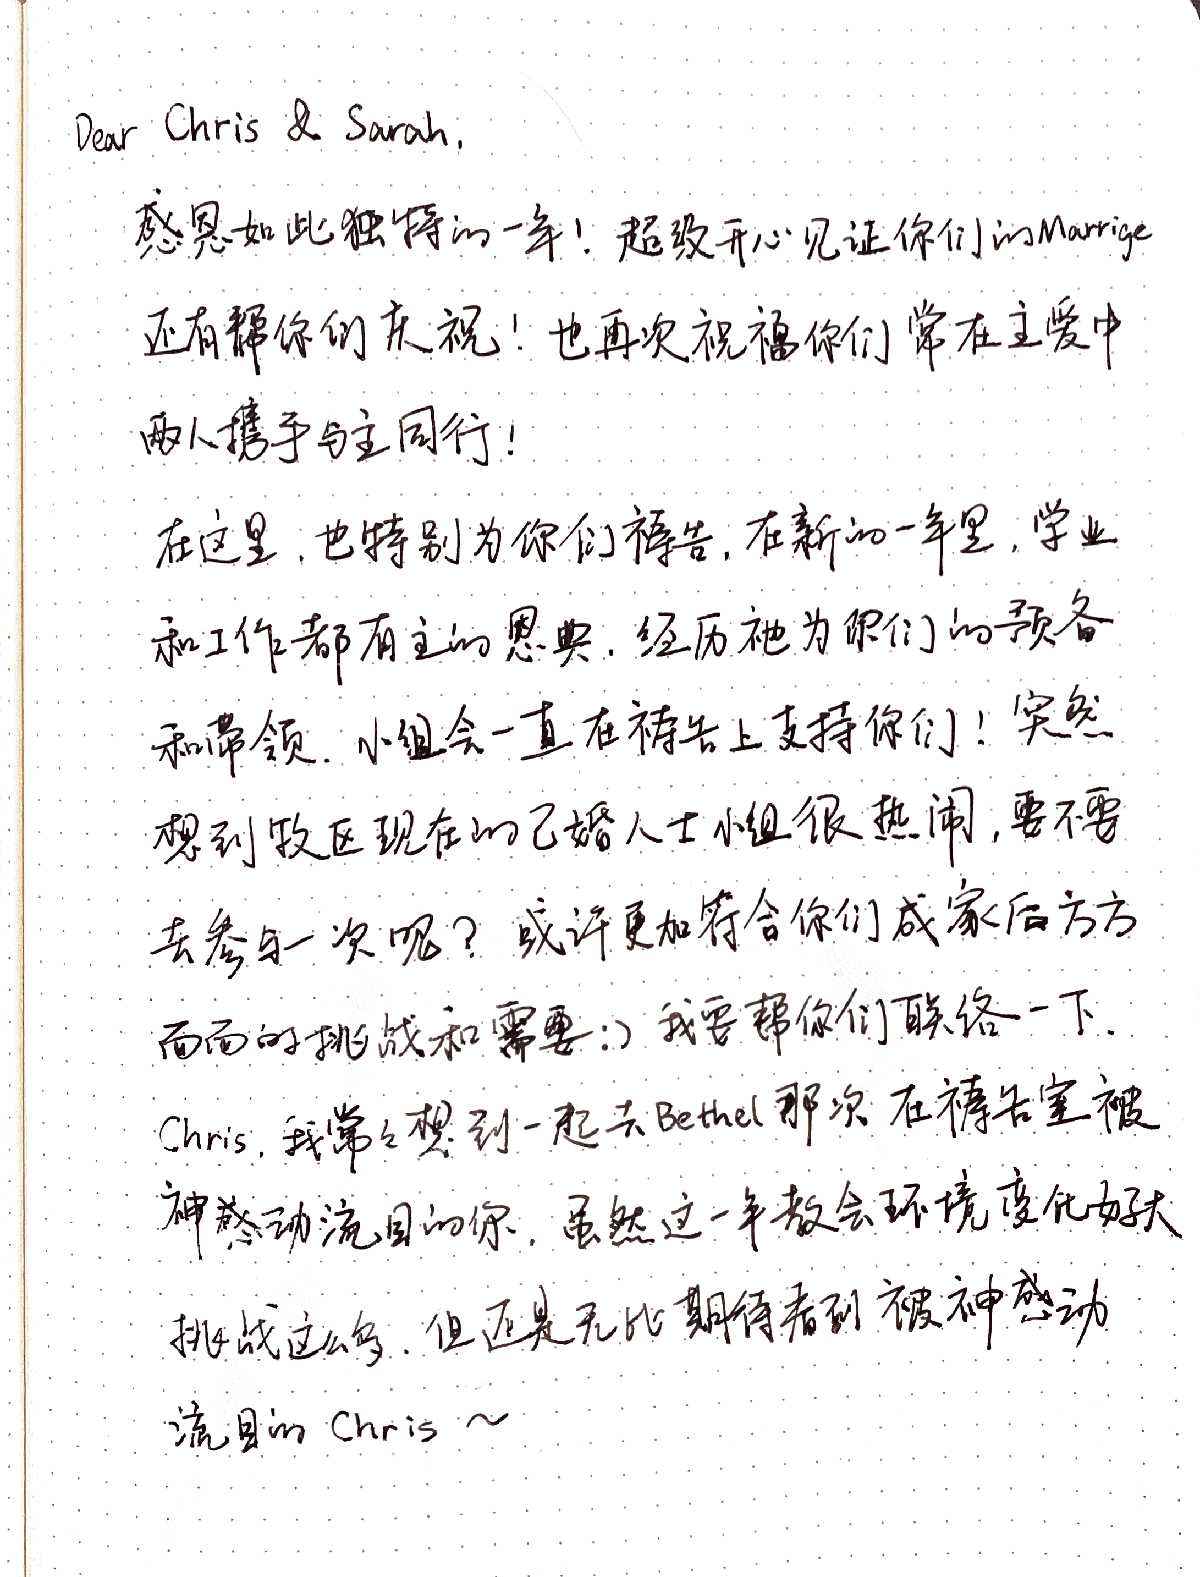 Dear Chris & Sarah,
感恩如此独特的一年！超级开心见证你们的Marrige
还有帮你们庆祝！也再次祝福你们常在主爱中
两人携手与主同行！
在这里，也特别为你们祷告，在新的一年里，学业
和工作都有主的恩典，经历祂为你们的预备
和带领．小组会一直在祷告上支持你们！突然
想到牧区现在的已婚人士小组很热闹，要不要
去参与一次呢？或许更加符合你们成家后方方
面面的挑战和需要:) 我要帮你们联络一下．
Chris，我常々想到一起去Bethel那次在祷告室被
神感动流目的你．虽然这一年教会环境变化好大
挑战这么多．但还是无比期待看到被神感动
流目的 Chris ～